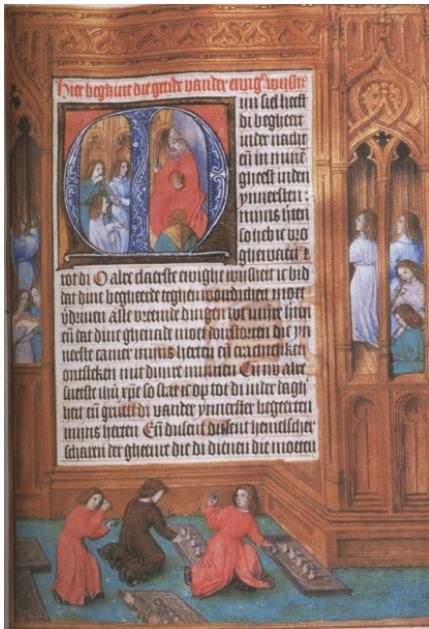 Hier beghint die getide vander ewigh wijsh
M ijn siel heeft
di begheert
inder nacht
eñ in minē
gheest inden
ynnersten :
mijns htē
so heb ic vro
ghewaect
tot di O alre claerste ewighe wijsheit ic bid
dat dine begheerde teghenwoirdicheit moet
v̄driuen alle vreemde dingen wt mine htē
eñ dat dine ghenade moet die yn
nerste camer mijns herten eñ crachtelijkē
ontsteken mit dinre minnen Eñ nv alre
suetste ihū xp̄e so stae ic op tot di inder dagh
heit eñ gruet di vander ynnerster begeerten
mijns herten Eñ dusent dusent hemelscher
scharen der gheenre die di dienen die moeten